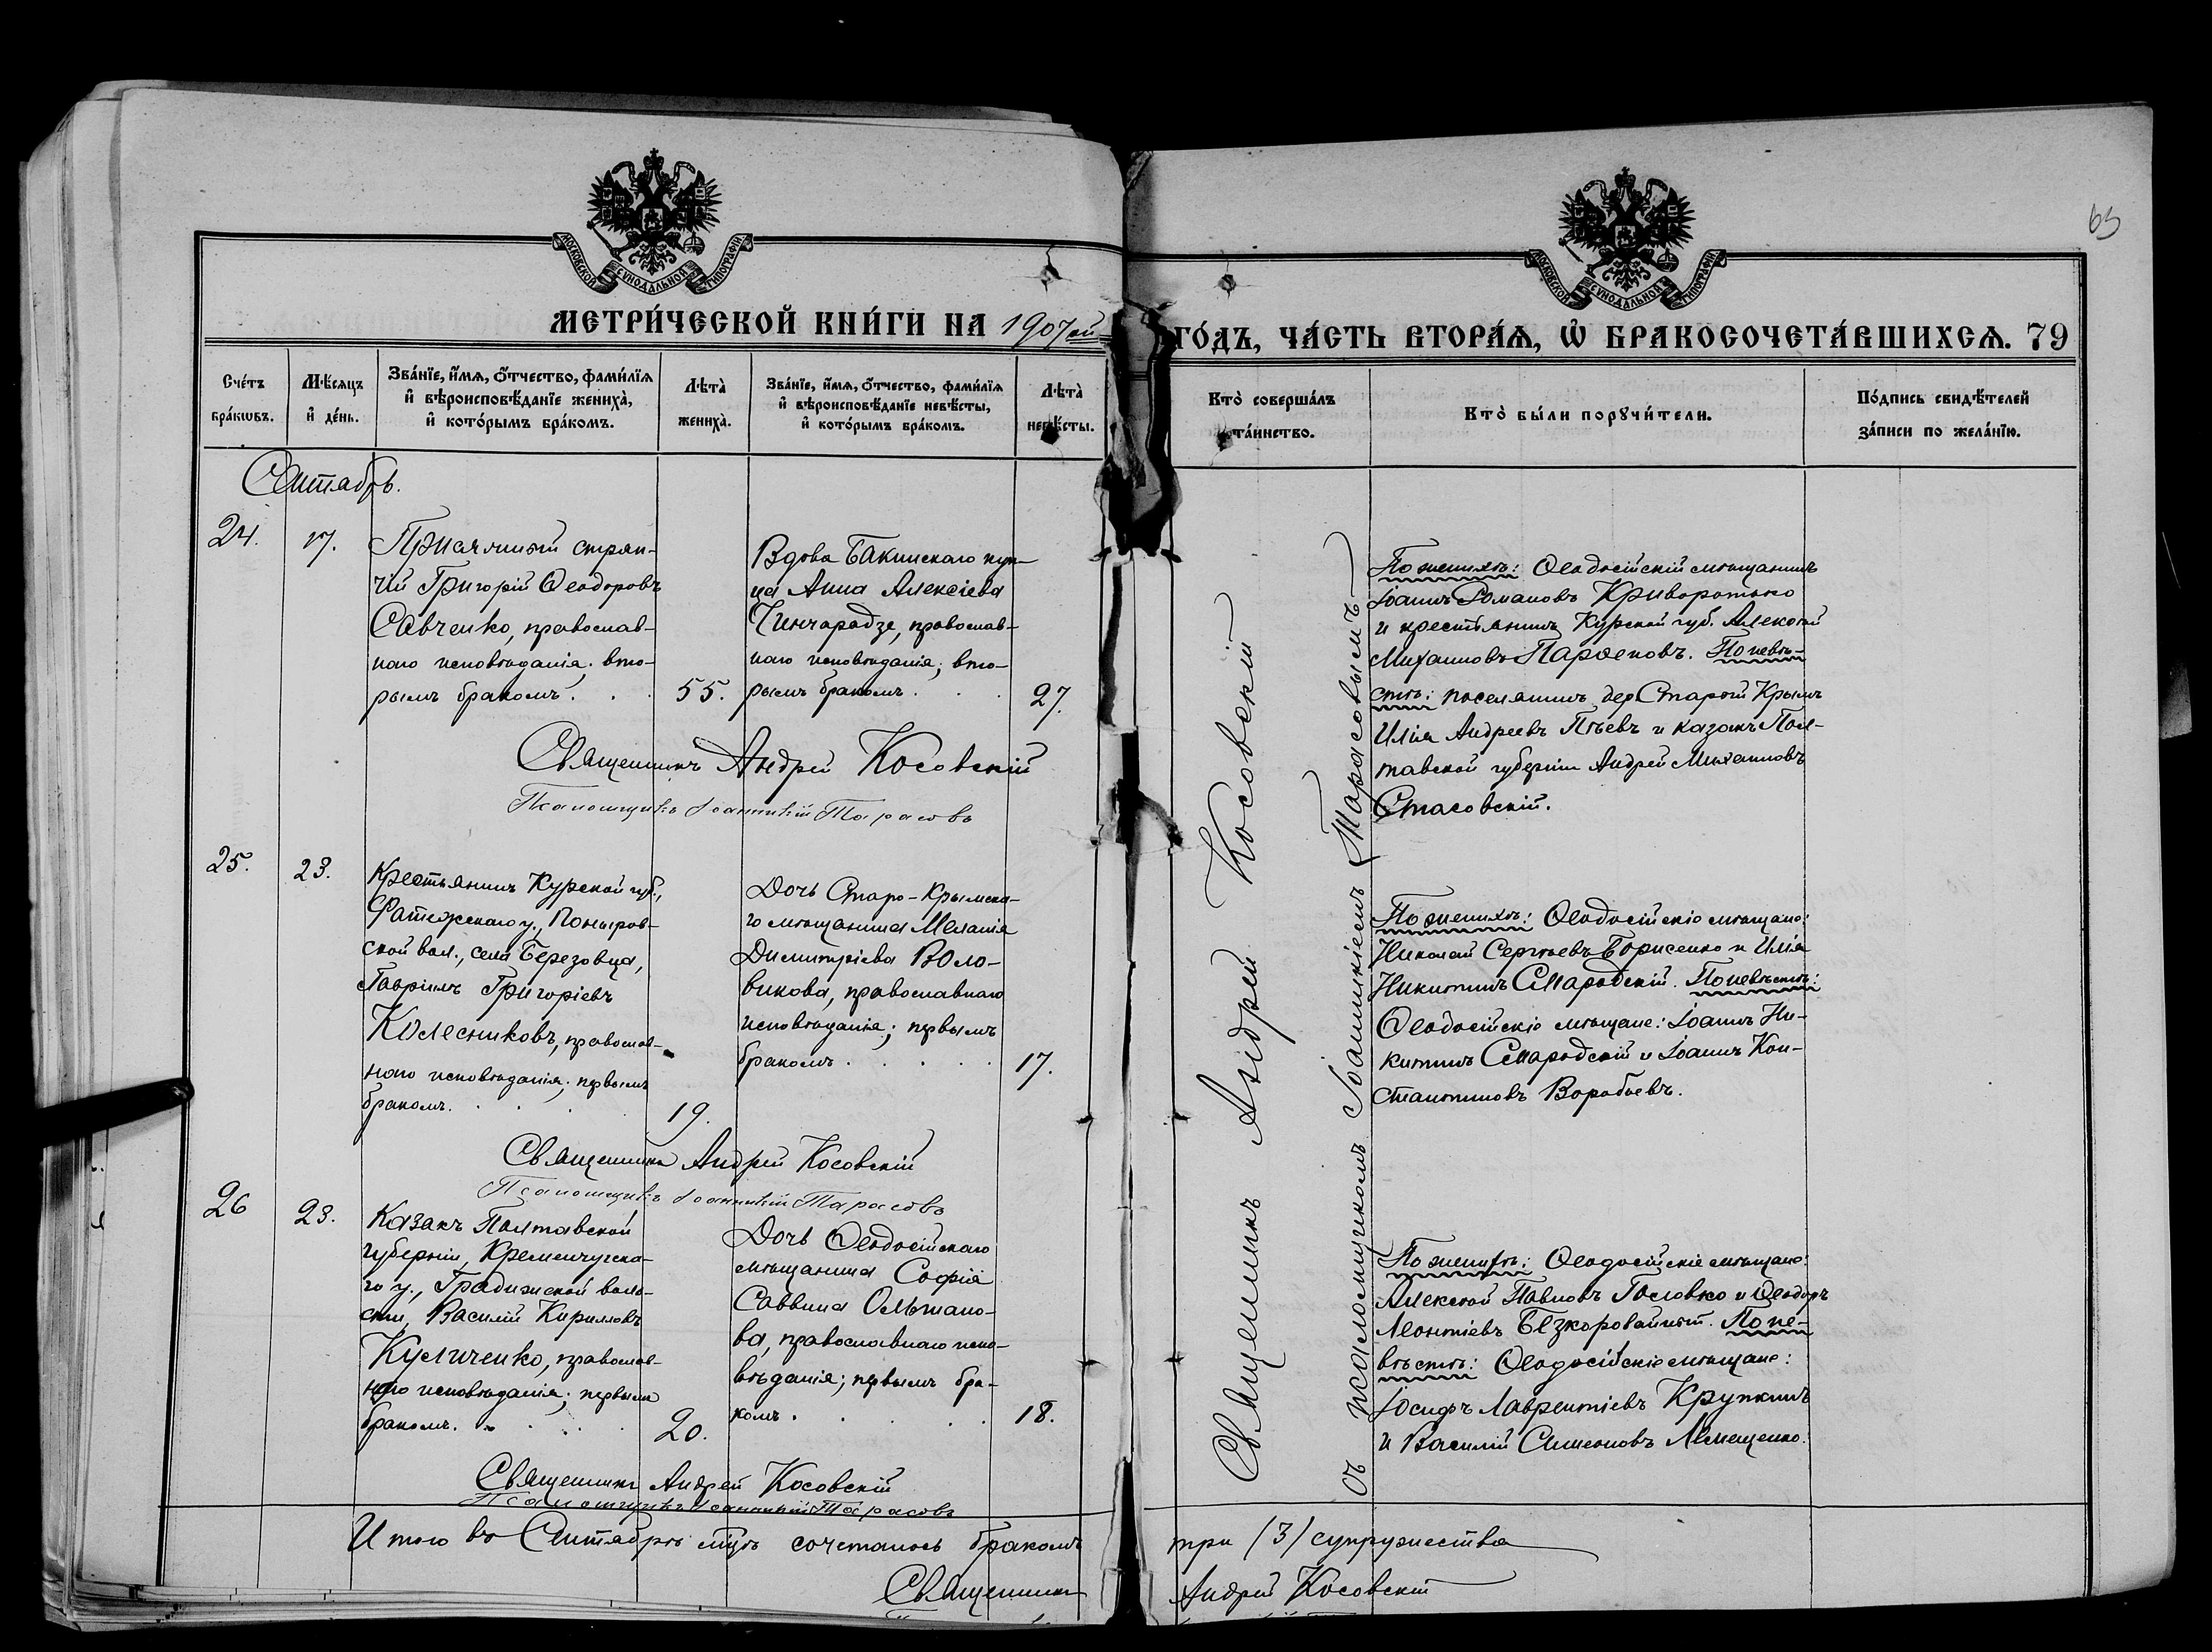 65
МОСКОВСКОЙ СУНОДАЛЬНОЙ ТИПОГРАФІИ.
МОСКОВСКОЙ СУНОДАЛЬНОЙ ТИПОГРАФІИ.
МЕТРИ́ЧЕСКОЙ КНИ́ГИ НА 1907 ой
ГО́ДЪ, ЧА́СТЬ ВТОРА́Ѧ, Ѡ БРАКОСОЧЕТА́ВШИХСѦ. 79
Сче́тъ бра́кѡвъ.
Мѣ́сяцъ и҆ де́нь.
Зва́нїе, и҆́мѧ, ѻ҆́тчество, фами́лїѧ и҆ вѣроисповѣ́данїе жениха̀, и҆ кото́рымъ бра́комъ.
Лѣта̀ жениха̀.
Зва́нїе, и҆́мѧ, ѻ҆́тчество, фами́лїѧ и҆ вѣроисповѣ́данїе невѣ́сты, и҆ кото́рымъ бра́комъ.
Лѣта̀ невѣ́сты.
Кто̀ соверша́лъ та́инство.
Кто̀ бы́ли порꙋчи́тели.
По́дпись свидѣ́телей за́писи по жела́нїю.
Сентябрь.
24.
17.
Присяжный стряп-
чій Григорій Ѳеодоровъ
Савченко, православ-
наго исповѣданія; вто-
рымъ бракомъ. . .
55.
Вдова Бакинскаго куп-
ца Анна Алексіева
Чинчарадзе, православ-
наго исповѣданія; вто-
рымъ бракомъ. . .
27.
Священникъ Андрей Косовскій
Псаломщикъ Іоанникій Тарасовъ
По женихѣ: Ѳеодосійскій мѣщанинъ
Іоаннъ Романовъ Криворотько
и крестьянинъ Курской губ. Алексѣй
Михаиловъ Парѳеновъ. По невѣ-
стѣ: поселянинъ дер. Старый Крымъ
Илія Андреевъ Пѣевъ и казакъ Пол-
тавской губерніи Андрей Михаиловъ
Стасовскій.
25.
23.
Крестьянинъ Курской губ.,
Фатежскаго у., Поныров-
ской вол., села Березовца,
Гавріилъ Григоріевъ
Колесниковъ, православ-
наго исповѣданія; первымъ
бракомъ. . . .
19.
Дочь Старо-Крымска-
го мѣщанина Меланія
Димитріева Воло-
викова, православнаго
исповѣданія; первымъ
бракомъ. . . . .
17.
Священникъ Андрей Косовскій
Псаломщикъ Іоанникій Тарасовъ
По женихѣ: Ѳеодосійскіе мѣщане:
Николай Сергѣевъ Борисенко и Илія
Никитинъ Смародскій. По невѣстѣ:
Ѳеодосійскіе мѣщане: Іоаннъ Ни-
китинъ Смародскій и Іоаннъ Кон-
стантиновъ Воробьевъ.
26
23.
Казакъ Полтавской
губерніи, Кременчугска-
го у., Градижской воло-
сти, Василій Кирилловъ
Куличенко, православ-
наго исповѣданія; первымъ
бракомъ. . . .
20.
Дочь Ѳеодосійскаго
мѣщанина Софія
Саввина Ольшано-
ва, православнаго испо-
вѣданія; первымъ бра-
комъ. . . . .
18.
Священникъ Андрей Косовскій
Псаломщикъ Іоанникій Тарасовъ
По женихѣ: Ѳеодосійскіе мѣщане:
Алексѣй Павловъ Гословко и Ѳеодоръ
Леонтіевъ Безкоровайный. По не-
вѣстѣ: Ѳеодосійскіе мѣщане:
Іосифъ Лаврентіевъ Крупкинъ
и Василій Симеоновъ Лемещенко.
Священникъ Андрей Косовскій
съ псаломщикомъ Іоанникіемъ Тарасовымъ
Итого въ Сентябрѣ мѣс. сочеталось бракомъ
три (3) супружества
Священникъ
Андрей Косовскій